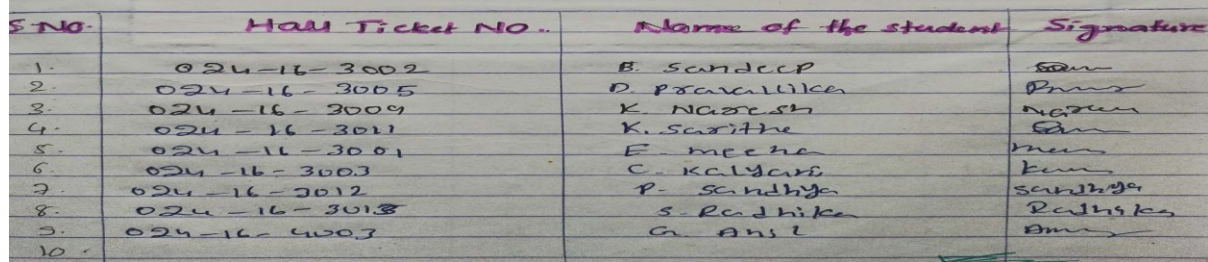 S NO. Hall Ticket NO.. Name of the student Signature
1. 024-16-3002 B. Sandeep
2. 024-16-3005 D. Pravallika
3. 024-16-3009 K Naresh Naresh
4. 024-16-3011 K. Saritha
5. 024-16-3001 E. meena
6. 024-16-3003 C. Kalyani
7. 024-16-3012 P. Sandhya Sandhya
8. 024-16-3013 S. Radhika Radhika
9. 024-16-4003 G. Ansi
10.